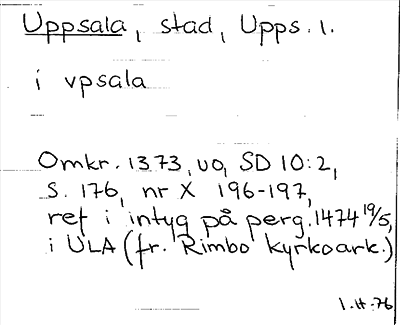 Uppsala, stad, Upps. l.
i vpsala
Omkr. 1373, uo, SD 10:2,
s. 176, nr X 196-197,
ref i intyg på perg. 1474 19/5,
i ULA (fr. Rimbo kyrkoark.)
I.H. 76